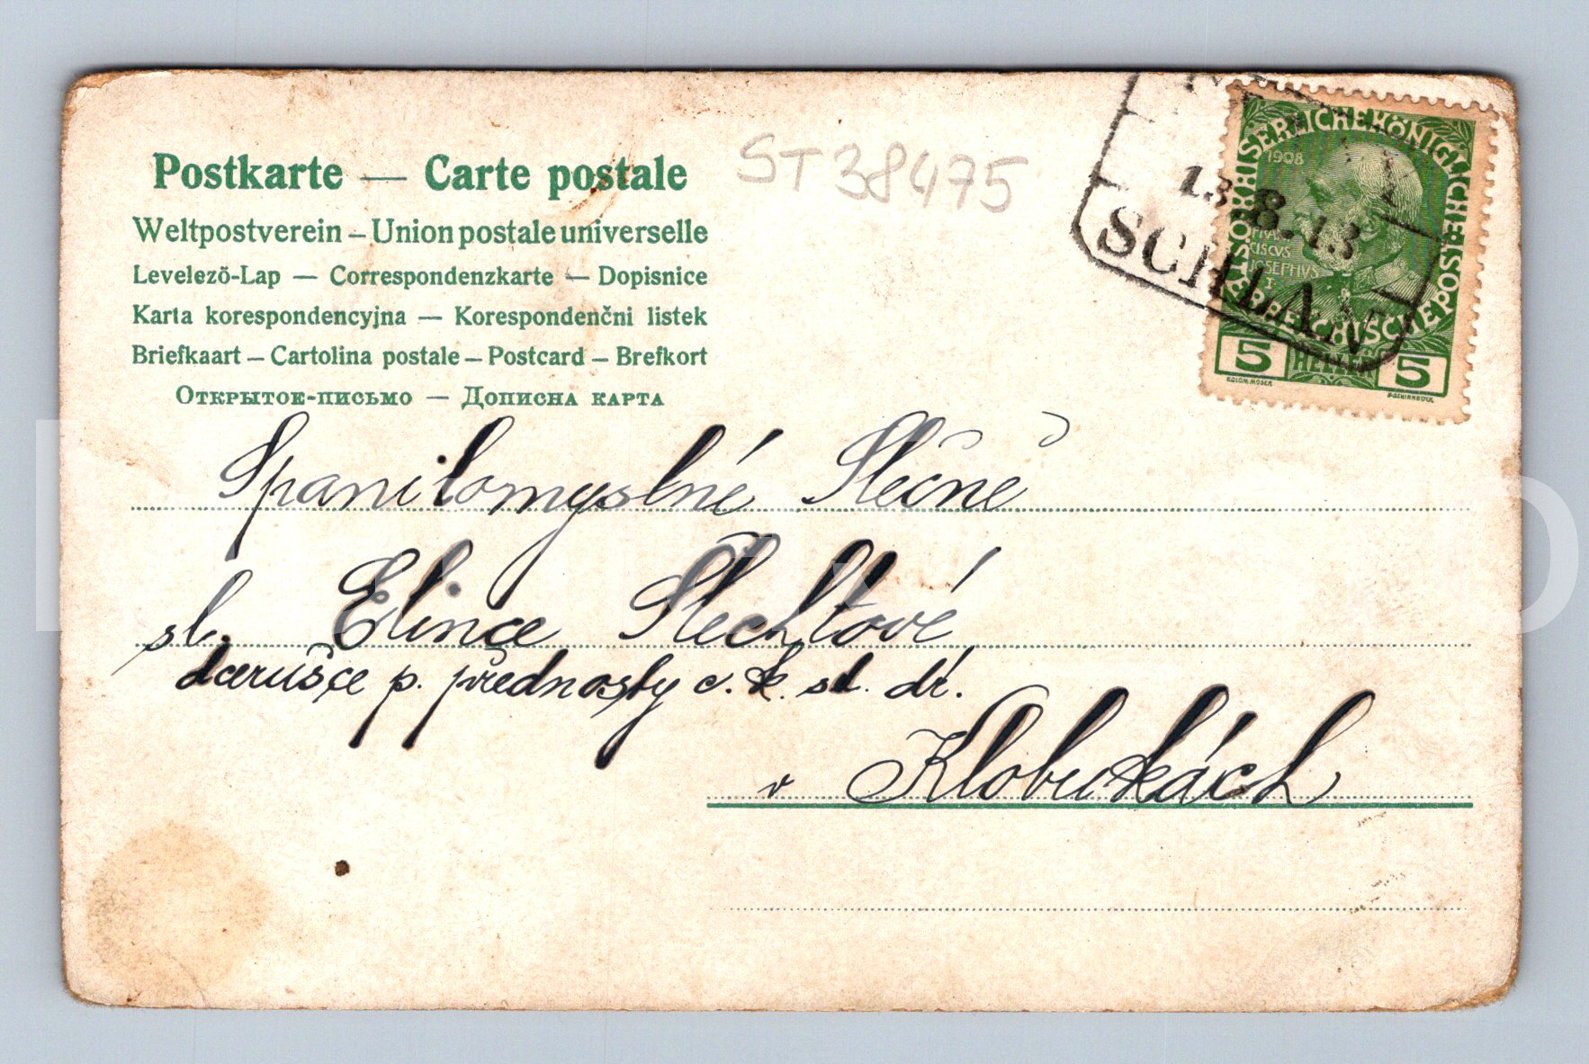 Postkarte — Carte postale
Weltpostverein – Union postale universelle
Levelező-Lap — Correspondenzkarte — Dopisnice
Karta korespondencyjna — Korespondenčni listek
Briefkaart – Cartolina postale – Postcard – Brefkort
Открытое-письмо — Дописна карта
ST38475
13.8.13
SCHLAN
KAISERLICHE KÖNIGLICHE
ÖSTERREICHISCHE POST
1908
FRAN
CISCUS
JOSEPHVS
I
5 HELLER 5
KOLOM. MOSER
F. SCHIRNBÖCK
Spanilomyslné Slečně
sl. Elince Šlechtové
dcerušce p. přednosty c. k. st. dr.
v Klobukách